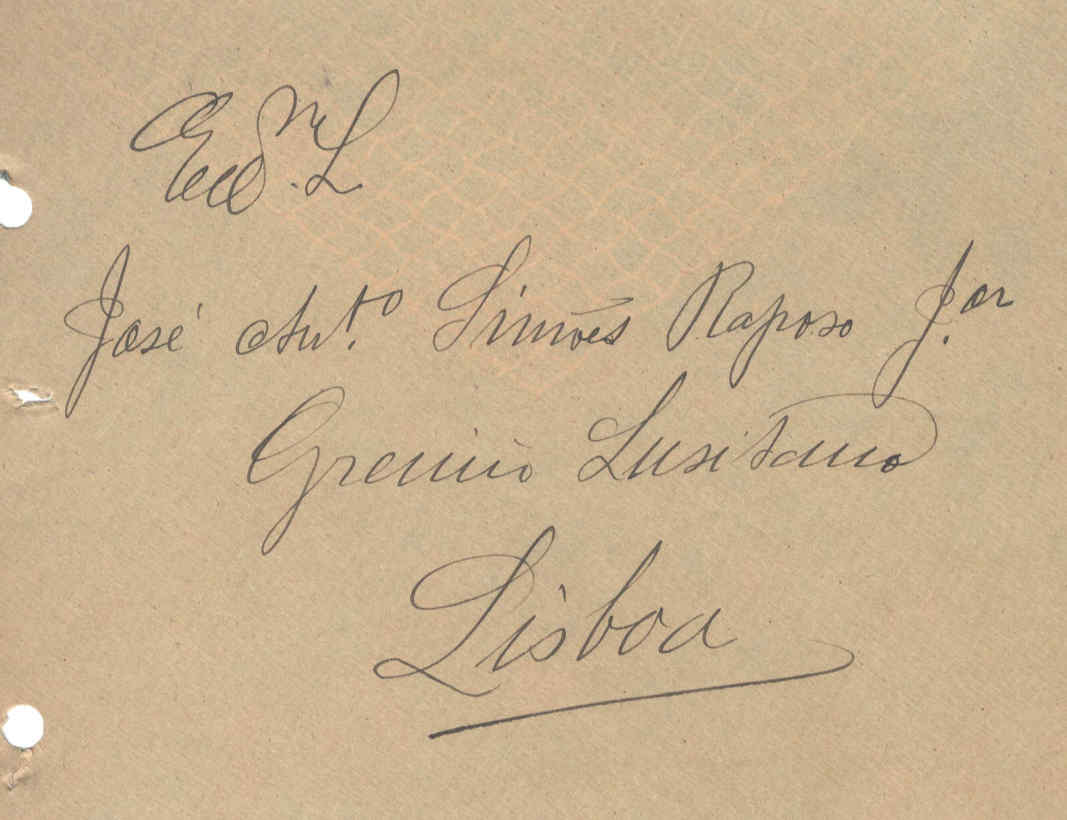 José Ant.º Simões Raposo J.or
Gremio Lusitano
Lisboa